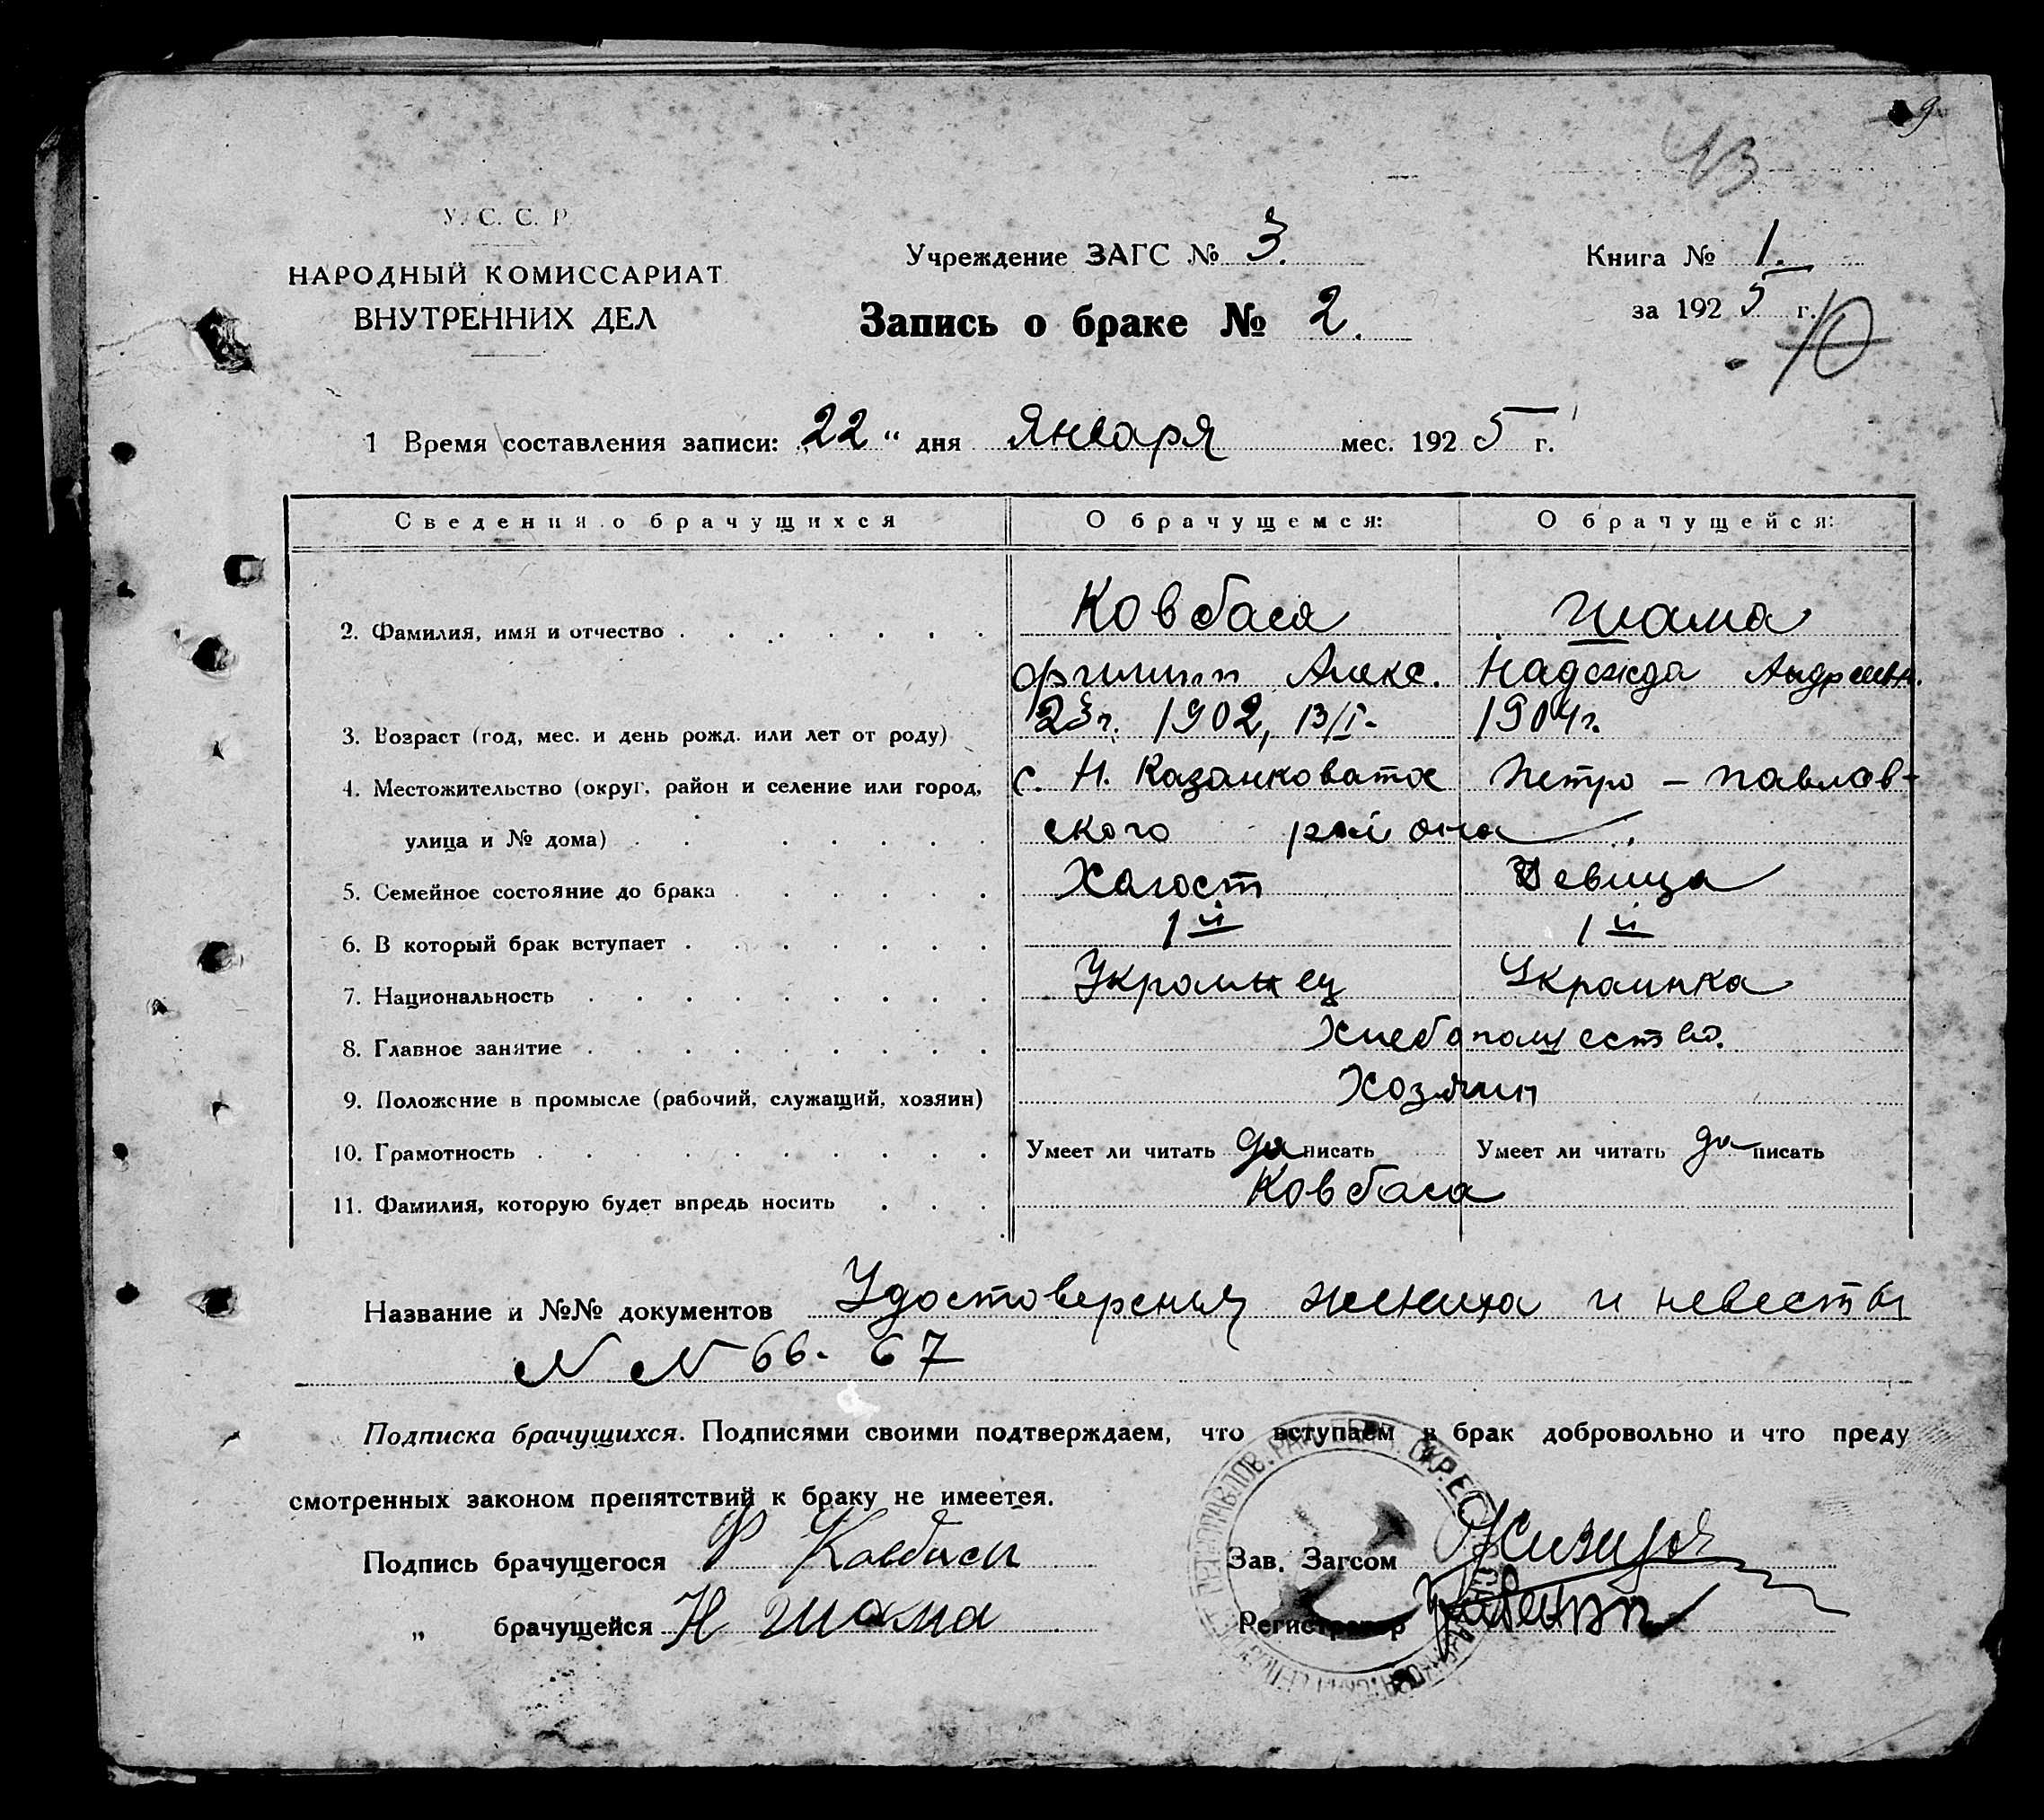 9
43
У. С. С. Р.
НАРОДНЫЙ КОМИССАРИАТ
ВНУТРЕННИХ ДЕЛ
Учреждение ЗАГС № 3.
Запись о браке № 2.
Книга № 1.
за 1925 г.
10
1 Время составления записи: „22“ дня Января мес. 1925 г.
Сведения о брачущихся О брачущемся: О брачущейся:
2. Фамилия, имя и отчество Ковбася Шама
Филипп Алекс. Надежда Андреевн.
3. Возраст (год, мес. и день рожд. или лет от роду) 23 г. 1902, 13/I. 1904 г.
4. Местожительство (округ, район и селение или город, с. Н. Казанковатое Петро-Павлов-
улица и № дома) ского района
5. Семейное состояние до брака Холост Девица
6. В который брак вступает 1й 1й
7. Национальность Украинец Украинка
8. Главное занятие Хлебопашество.
9. Положение в промысле (рабочий, служащий, хозяин) Хозяин
10. Грамотность Умеет ли читать да писать Умеет ли читать да писать
11. Фамилия, которую будет впредь носить Ковбаса
Название и №№ документов Удостоверения жениха и невесты
N N 66. 67
Подписка брачущихся. Подписями своими подтверждаем, что вступаем в брак добровольно и что преду
смотренных законом препятствий к браку не имеется.
Подпись брачущегося Ф Ковбаси
Зав. Загсом
„ брачущейся Н Шама
Регистратор